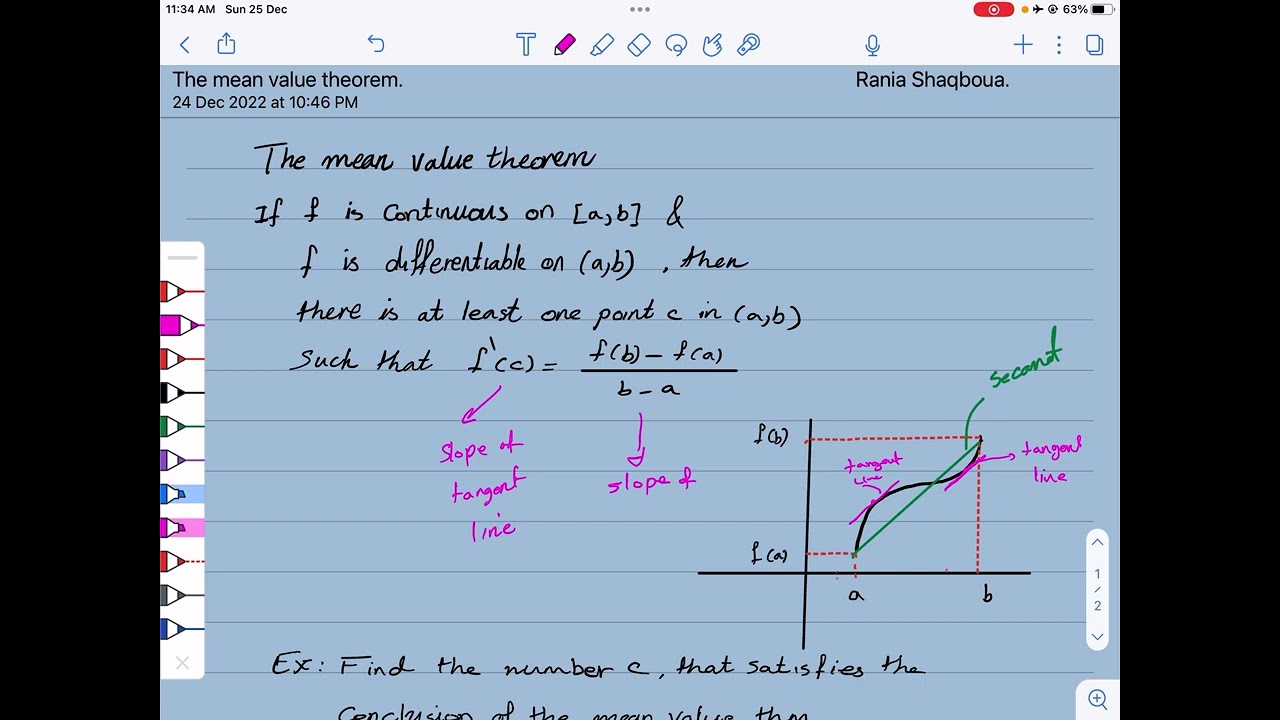 11:34 AM Sun 25 Dec
63%
The mean value theorem.
Rania Shaqboua.
24 Dec 2022 at 10:46 PM
The mean value theorem
If f is continuous on [a,b] &
f is differentiable on (a,b), then
there is at least one point c in (a,b)
Such that f'(c) = f(b) - f(a) / b - a
secant
slope of
tangent
line
slope of
f(b)
tangent
line
tangent
line
f(a)
a
b
1
/
2
Ex: Find the number c, that satisfies the
conclusion of the mean value thm